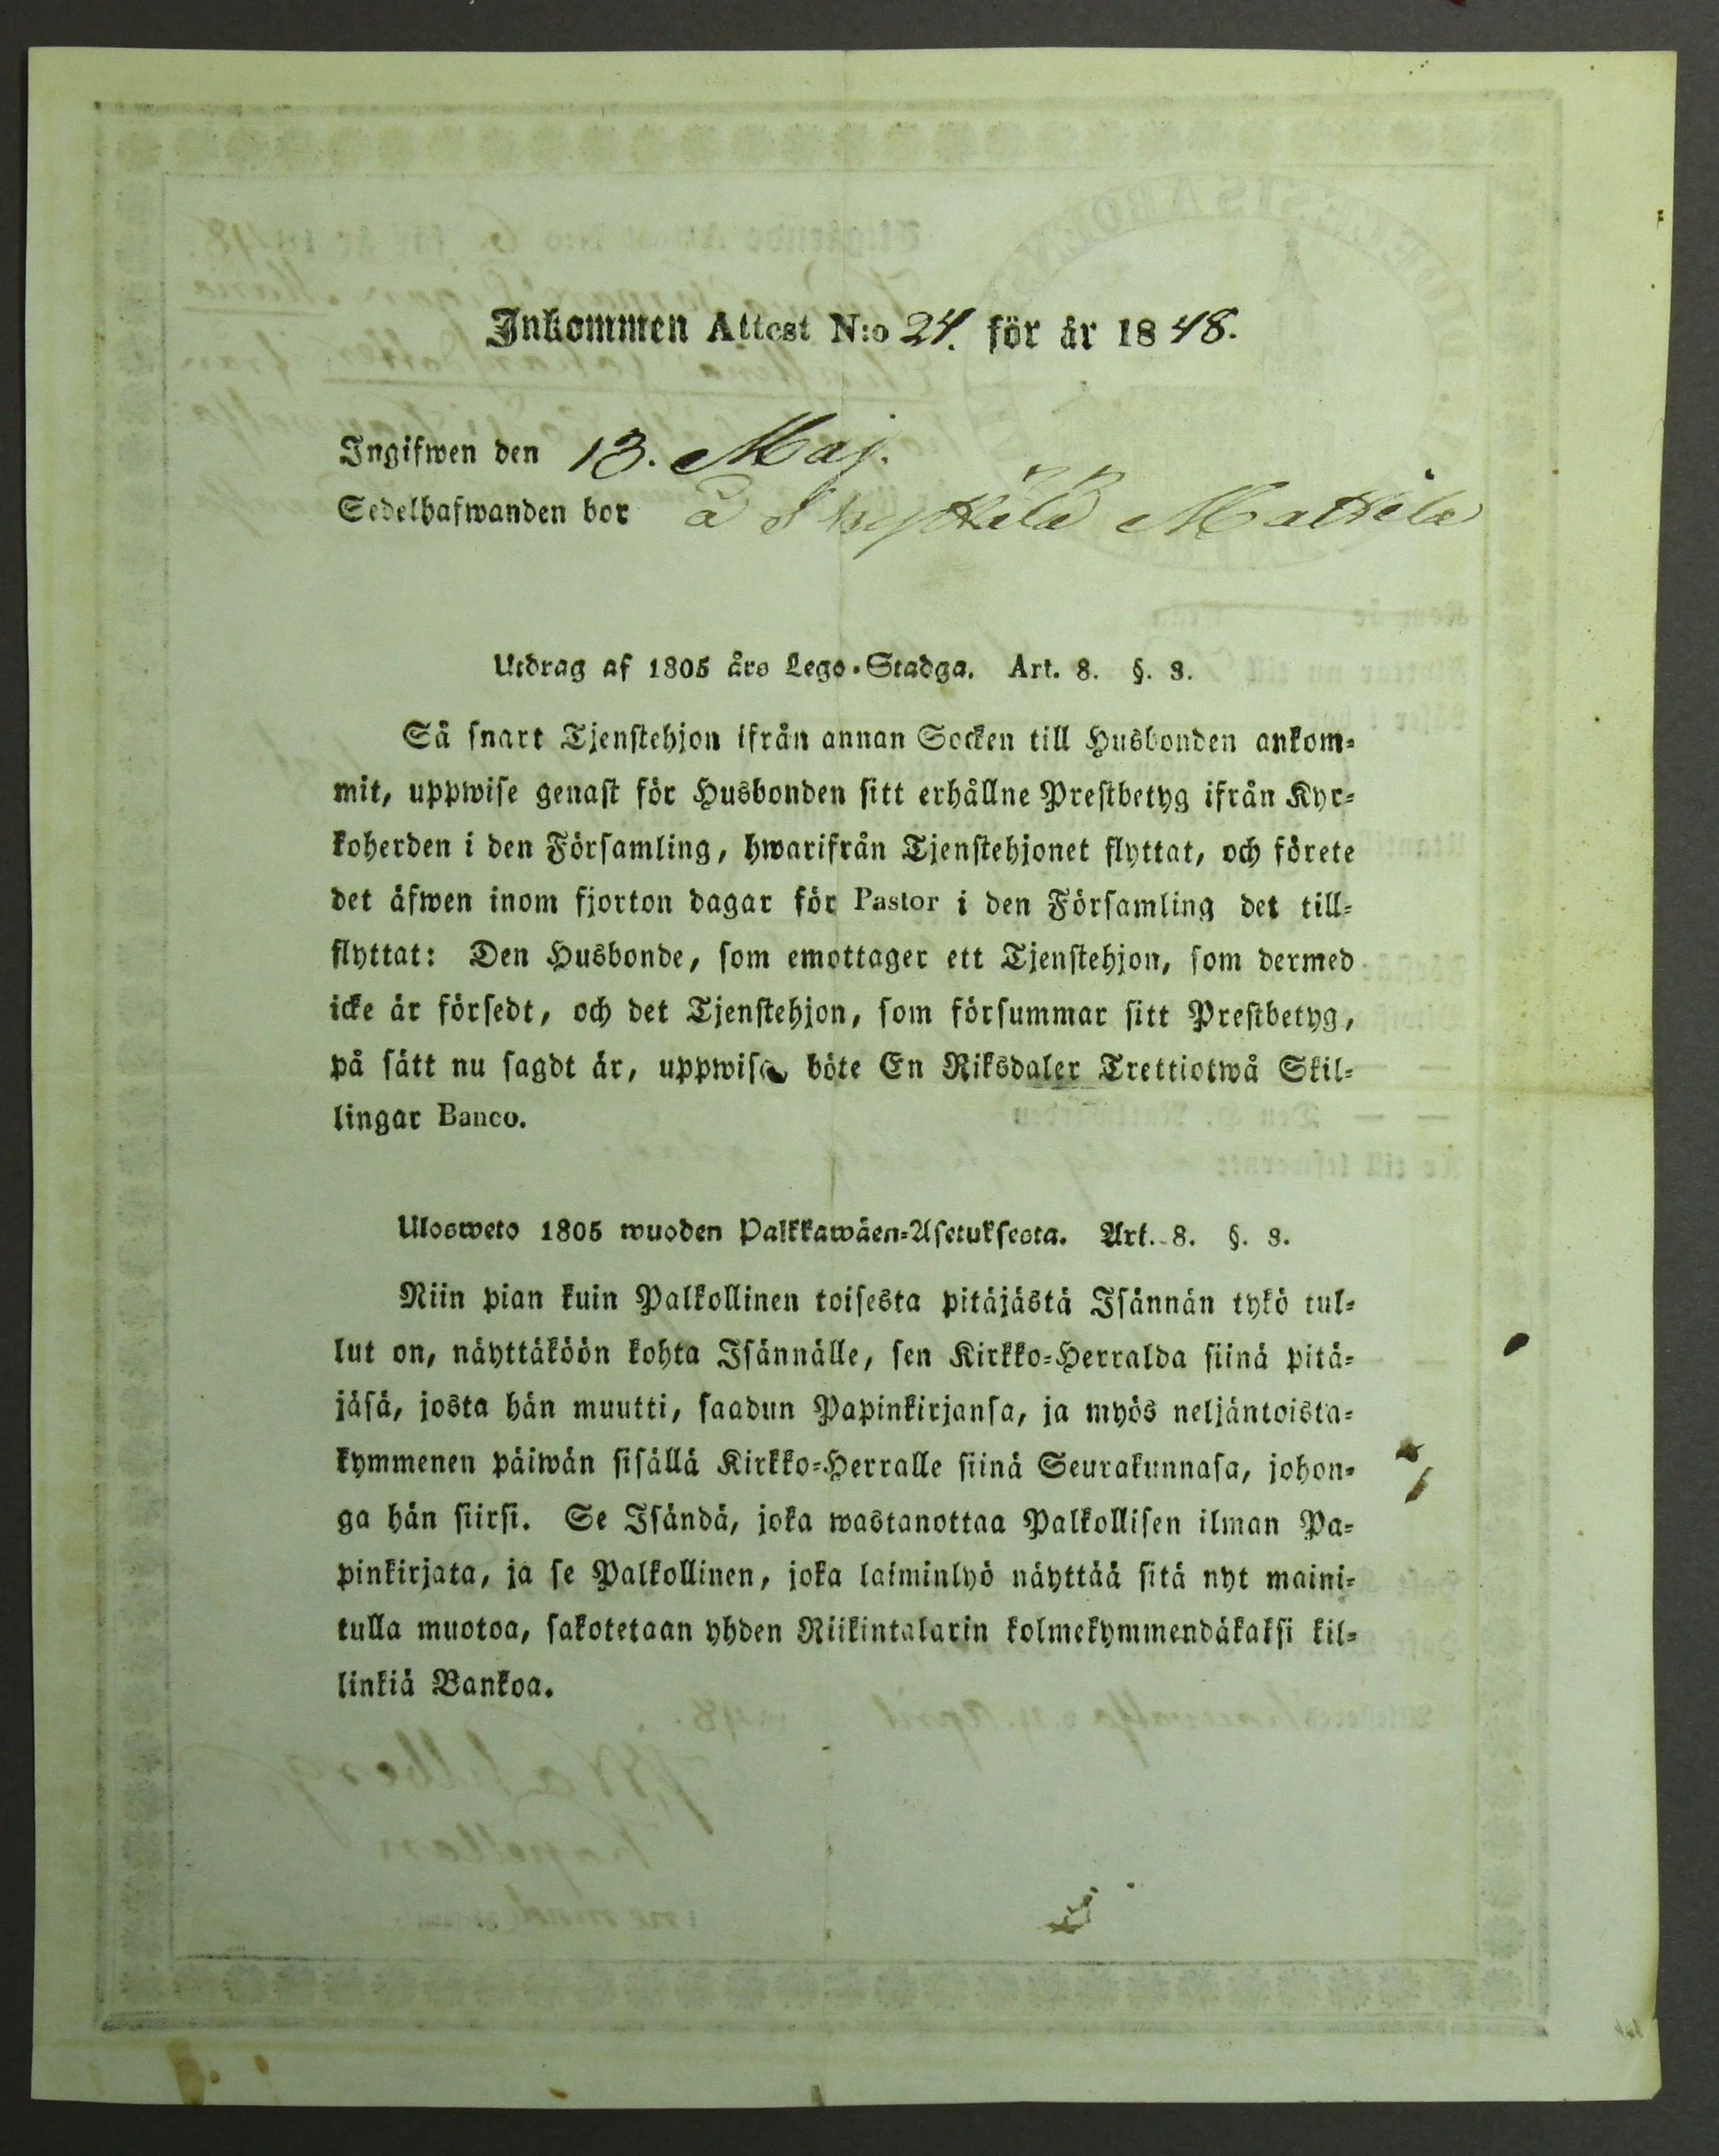 Inkommen Attest N:o 24. för år 1848.
Ingifwen den 13. Maj.
Sedelhafwanden bor å Skyttälä Mattila
Utdrag af 1805 års Lego-Stadga. Art. 8. §. 3.
Så snart Tjenstehjon ifrån annan Socken till Husbonden ankom-
mit, uppwise genast för Husbonden sitt erhållne Prestbetyg ifrån Kyr-
koherden i den Församling, hwarifrån Tjenstehjonet flyttat, och förete
det äfwen inom fjorton dagar för Pastor i den Församling det till-
flyttat: Den Husbonde, som emottager ett Tjenstehjon, som dermed
icke är försedt, och det Tjenstehjon, som försummar sitt Prestbetyg,
på sätt nu sagdt är, uppwisa böte En Riksdaler Trettiotwå Skil-
lingar Banco.
Ulosweto 1805 wuoden Palkkawäen-Asetuksesta. Art. 8. §. 3.
Niin pian kuin Palkollinen toisesta pitäjästä Isännän tykö tul-
lut on, näyttäköön kohta Isännälle, sen Kirkko-Herralda siinä pitä-
jäsä, josta hän muutti, saadun Papinkirjansa, ja myös neljäntoista-
kymmenen päiwän sisällä Kirkko-Herralle siinä Seurakunnasa, johon-
ga hän siirsi. Se Isändä, joka wastanottaa Palkollisen ilman Pa-
pinkirjata, ja se Palkollinen, joka laiminlyö näyttää sitä nyt maini-
tulla muotoa, sakotetaan yhden Riikintalarin kolmekymmendäkaksi kil-
linkiä Bankoa.